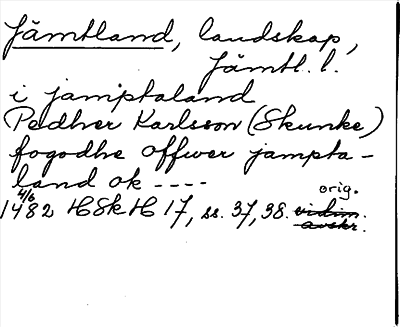 Jämtland, landskap,
Jämtl. l.
i jamptaland
Pedher Karlsson (Skunke)
fogodhe offwer jampta-
land ok ----
4/6 orig.
1482 HSkH 17, ss. 37, 38. vidim.
avskr.